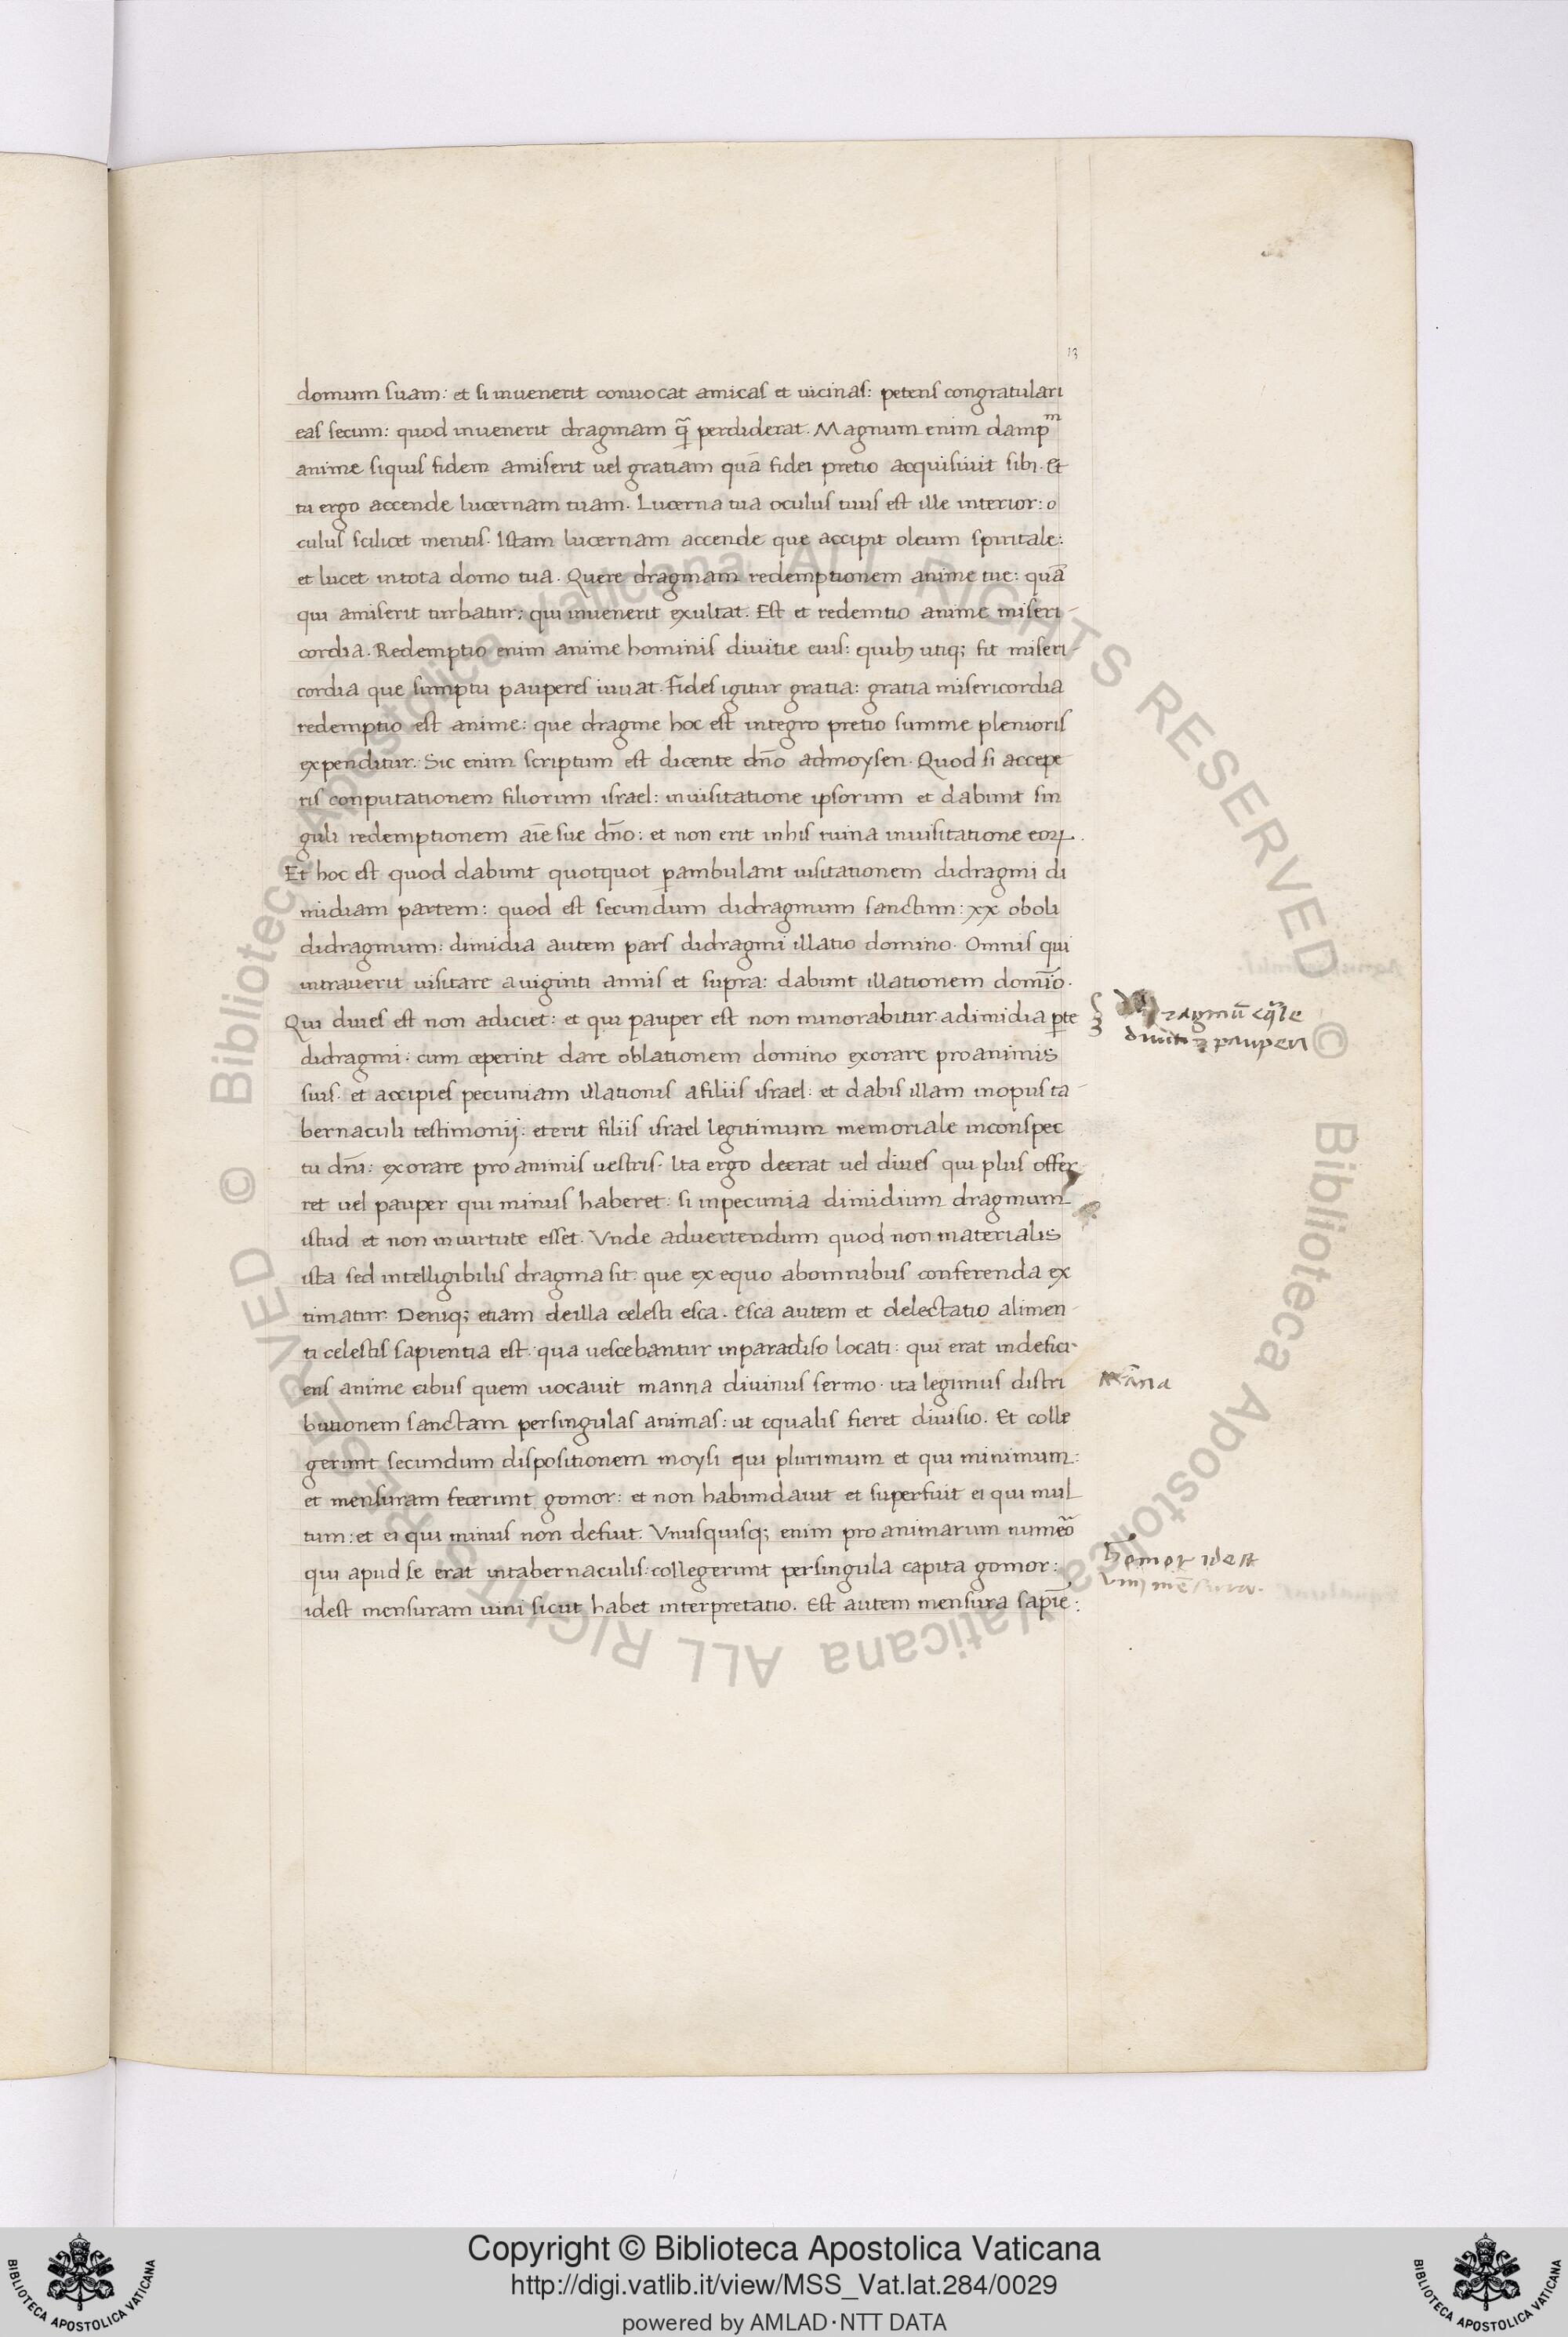 13
domum suam: et si inuenerit conuocat amicas et uicinas: petens congratulari
eas secum: quod inuenerit dragmam q̄ perdiderat. Magnum enim dampᵐ
anime siquis fidem amiserit uel gratiam quā fidei pretio acquisiuit sibi. Et
tu ergo accende lucernam tuam. Lucerna tua oculus tuus est ille interior: o
culus scilicet mentis. Istam lucernam accende que accipit oleum spiritale:
et lucet intota domo tua. Quere dragmam redemptionem anime tue: quā
qui amiserit turbatur: qui inuenerit exultat. Est et redemtio anime miseri-
cordia. Redemptio enim anime hominis diuitie eius: quibꝫ utiq; fit miseri-
cordia que sumptu pauperes iuuat. Fides igitur gratia: gratia misericordia
redemptio est anime: que dragme hoc est integro pretio summe plenioris
expenditur. Sic enim scriptum est dicente dn̄o admoysen. Quod si accepe
ris conputationem filiorum israel: inuisitatione ipsorum et dabunt sin
guli redemptionem aīe sue dn̄o: et non erit inhis ruina inuisitatione eoꝝ.
Et hoc est quod dabunt quotquot ꝑambulant uisitationem didragmi di
midiam partem: quod est secundum didragmum sanctum: xx oboli
didragmum: dimidia autem pars didragmi illatio domino. Omnis qui
intrauerit uisitare auiginti annis et supra: dabunt illationem domīo.
Qui diues est non adiciet: et qui pauper est non minorabitur adimidia ꝑte
didragmi: cum ceperint dare oblationem domino exorare proanimis
suis. et accipies pecuniam illationis afiliis israel: et dabis illam inopus ta-
bernaculi testimonij: eterit filiis israel legitimum memoriale inconspec
tu dn̄i: exorare pro animis uestris. Ita ergo deerat uel diues qui plus offer
ret uel pauper qui minus haberet: si inpecunia dimidium dragmum
istud et non inuirtute esset. Vnde aduertendum quod non materialis
ista sed intelligibilis dragma sit: que ex equo abomnibus conferenda ex
timatur. Deniq; etiam deilla celesti esca. Esca autem et delectatio alimen-
ti celestis sapientia est: qua uescebantur inparadiso locati: qui erat indefici-
ens anime cibus quem uocauit manna diuinus sermo. ita legimus distri
butionem sanctam persingulas animas: ut equalis fieret diuisio. Et colle
gerunt secundum dispositionem moysi qui plurimum et qui minimum:
et mensuram fecerunt gomor: et non habundauit et superfuit ei qui mul
tum: et ei qui minus non defuit. Vnusquisq; enim pro animarum numēo
qui apud se erat intabernaculis: collegerunt persingula capita gomor:
idest mensuram uini sicut habet interpretatio. Est autem mensura sapiē:
ragmū eq̄le
diuiti ⁊ pauperi
māna
homor idest
vinj mēsura.
Copyright © Biblioteca Apostolica Vaticana
http://digi.vatlib.it/view/MSS_Vat.lat.284/0029
powered by AMLAD·NTT DATA
BIBLIOTECA APOSTOLICA VATICANA
BIBLIOTECA APOSTOLICA VATICANA
© Biblioteca Apostolica Vaticana ALL RIGHTS RESERVED
© Biblioteca Apostolica Vaticana ALL RIGHTS RESERVED